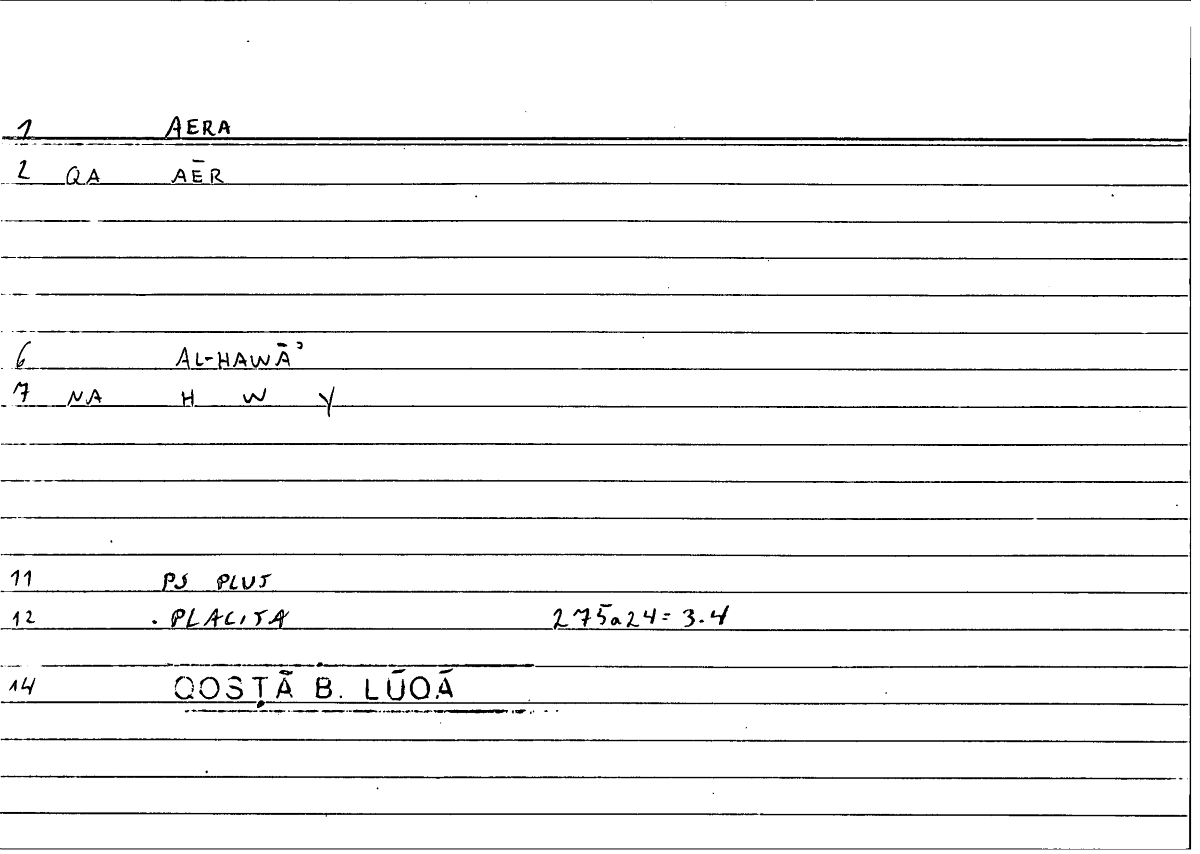 1 AERA
2 QA AĒR
6 AL-HAWĀʾ
7 NA H W Y
11 PS PLUT
12 . PLACITA 275a24 = 3.4
14 QOSṬĀ B. LŪQĀ